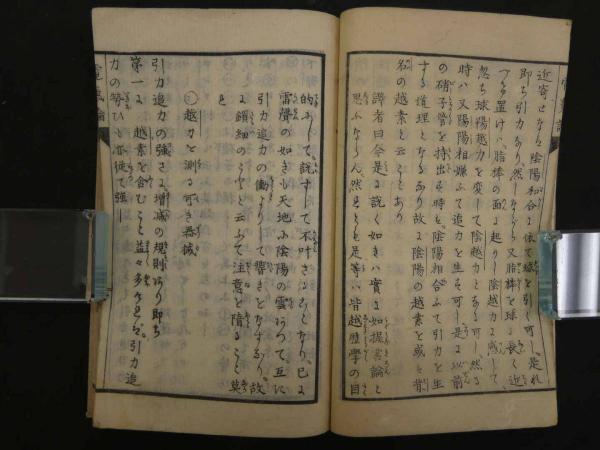 近寄せなば陰陽和合に依て球を引く可し是れ
即ち引力なり然しながら又脂棒を球に長く近
づけ置けハ脂棒の面に起りし陰越力に感して
忽ち球陽越力を変して陰越力となる可し然る
時ハ又陽陽相嫌ふて追力を生ず可し是に以前
の硝子管を持出す時を陰陽相合ふて引力を生
する道理となるなり故に陰陽の越素を或ハ背
名の越素と云ことあり
譯者曰今是に説く如きハ實に如握雲論と
思ふならん然れとも是等ハ皆越歴学の目
的にして説すして不叶さることなり已に
雷聲の如きも天地に陰陽の雲ありて互に
引力追力の働よりして響きとなするなり故
に瑣細のことと云ふて注意を惰ること莫
れ
越力を測る可き器械
引力追力の強さに増減の規則あり即ち
第一に 越素を含むこと益々多ケれば引力追
力の勢ひも亦従て強し